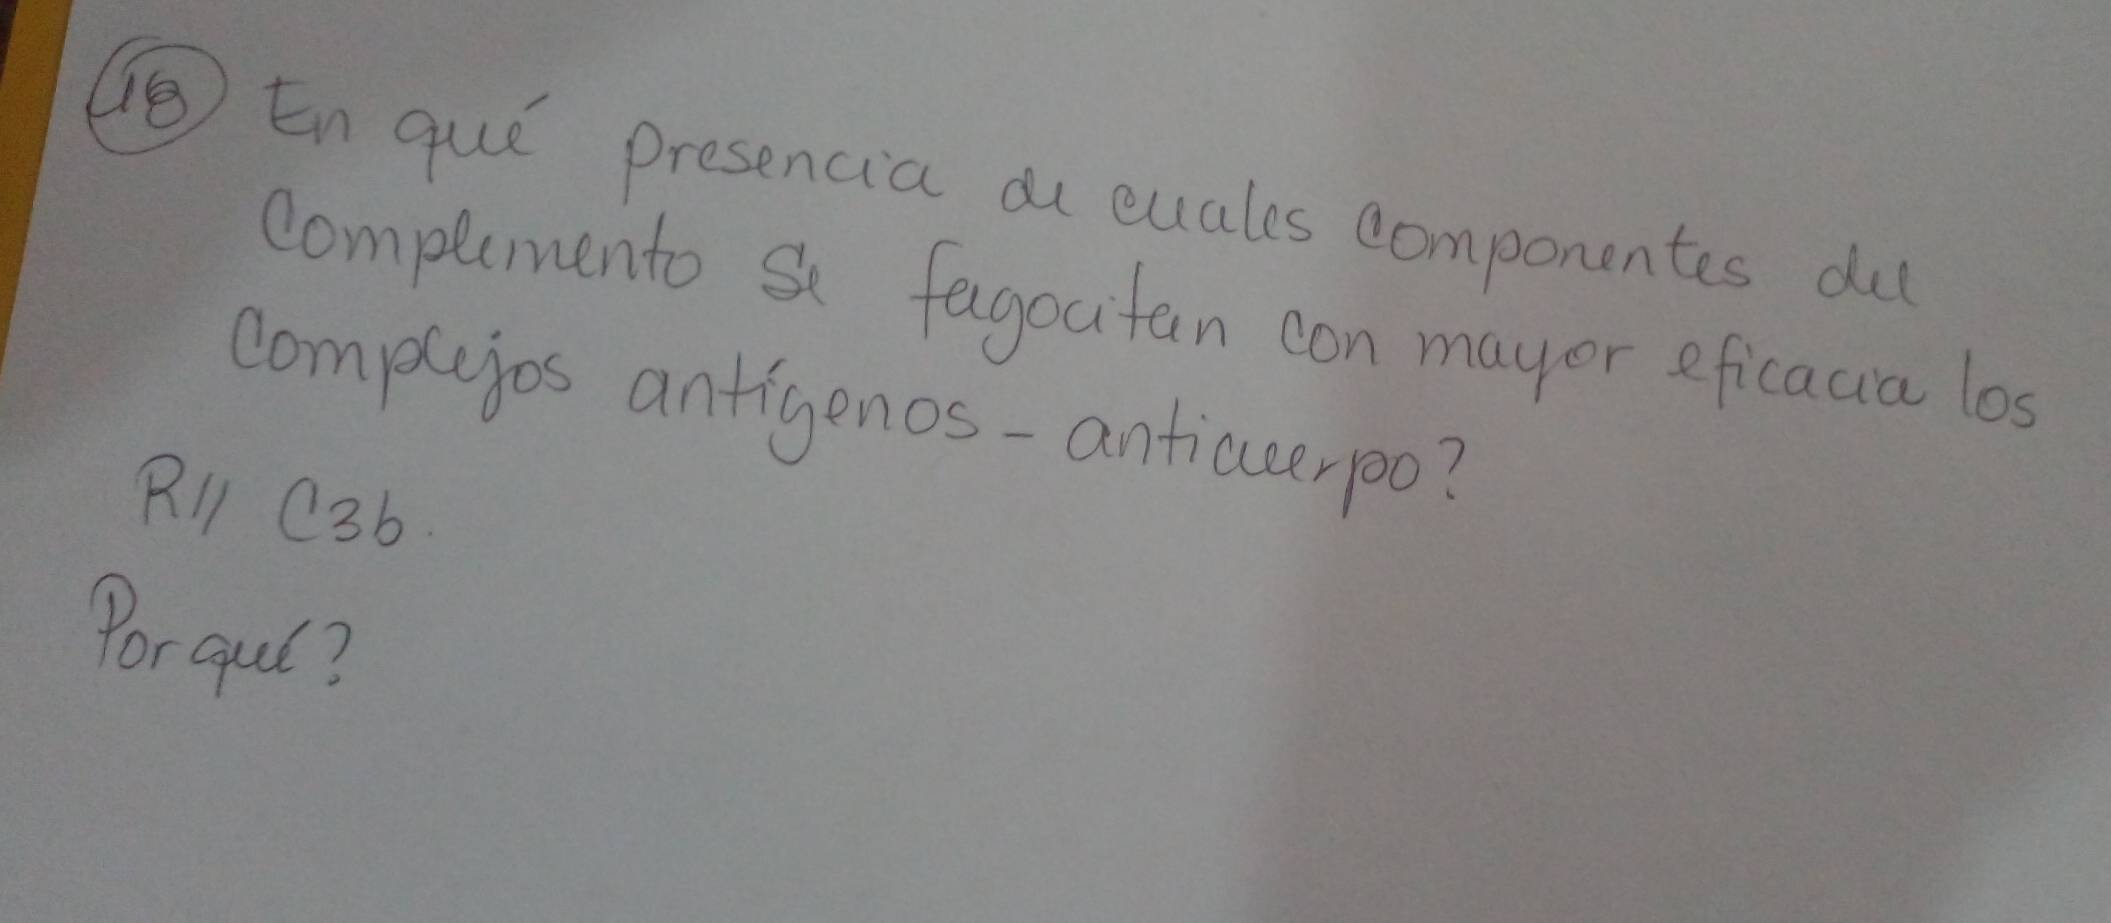 18 En qué presencia de cuales componentes del
Complemento se fagocitan con mayor eficacia los
Complejos antígenos - anticuerpo?
R// C3b.
Por qué?